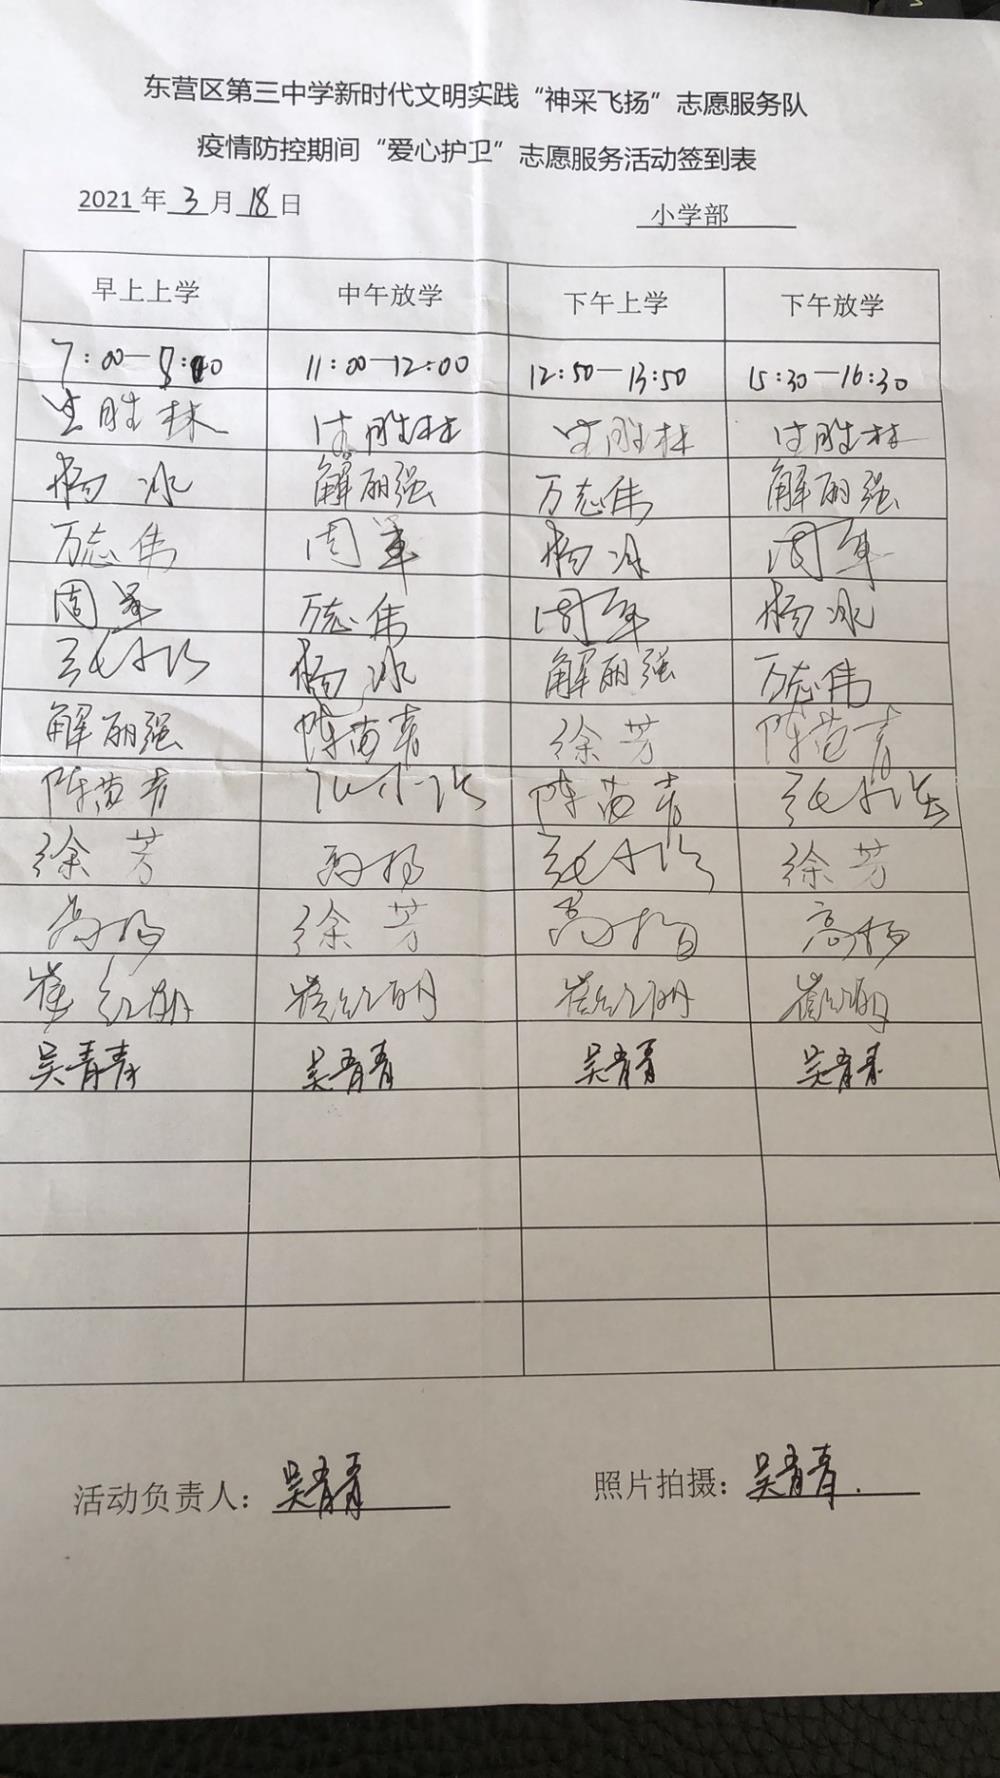 东营区第三中学新时代文明实践“神采飞扬”志愿服务队
疫情防控期间“爱心护卫”志愿服务活动签到表
2021年 3 月 18 日 小学部
早上上学 中午放学 下午上学 下午放学
7:00—8:00 11:00—12:00 12:50—13:50 15:30—16:30
胜林 胜林 胜林 胜林
杨冰 解丽强 万志伟 解丽强
万志伟 周军 杨冰 周军
周军 万志伟 周军 杨冰
张小 杨冰 解丽强 万志伟
解丽强 陈苗青 徐芳 陈苗青
陈苗青 张小 陈苗青 张小
徐芳 高扬 张小 徐芳
高扬 徐芳 高扬 高扬
崔红明 崔红明 崔红明 崔红明
吴青青 吴青青 吴青青 吴青青
活动负责人：吴青青 照片拍摄：吴青青.